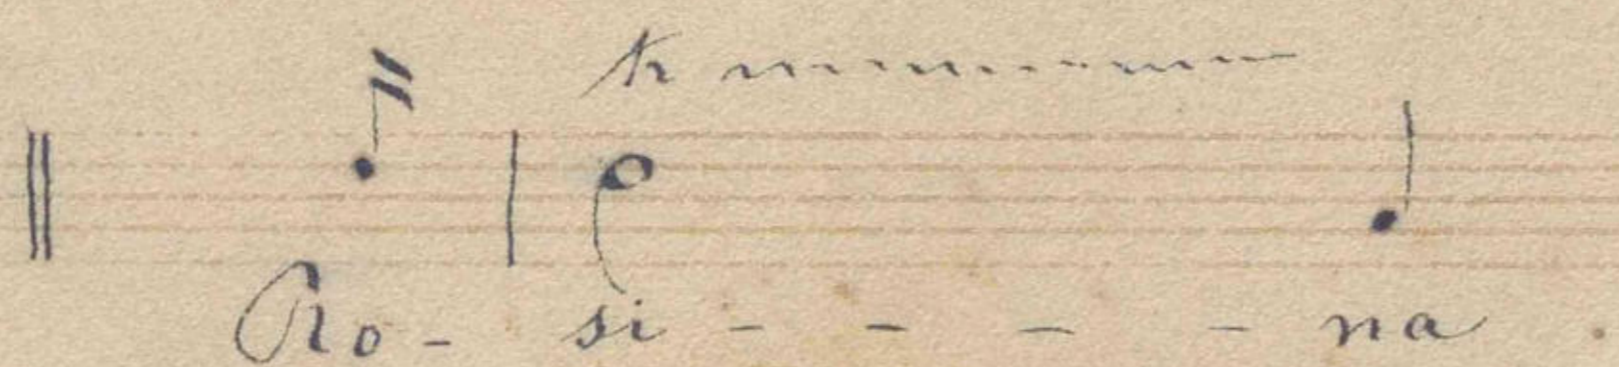 tr
Ro - si - - - - na